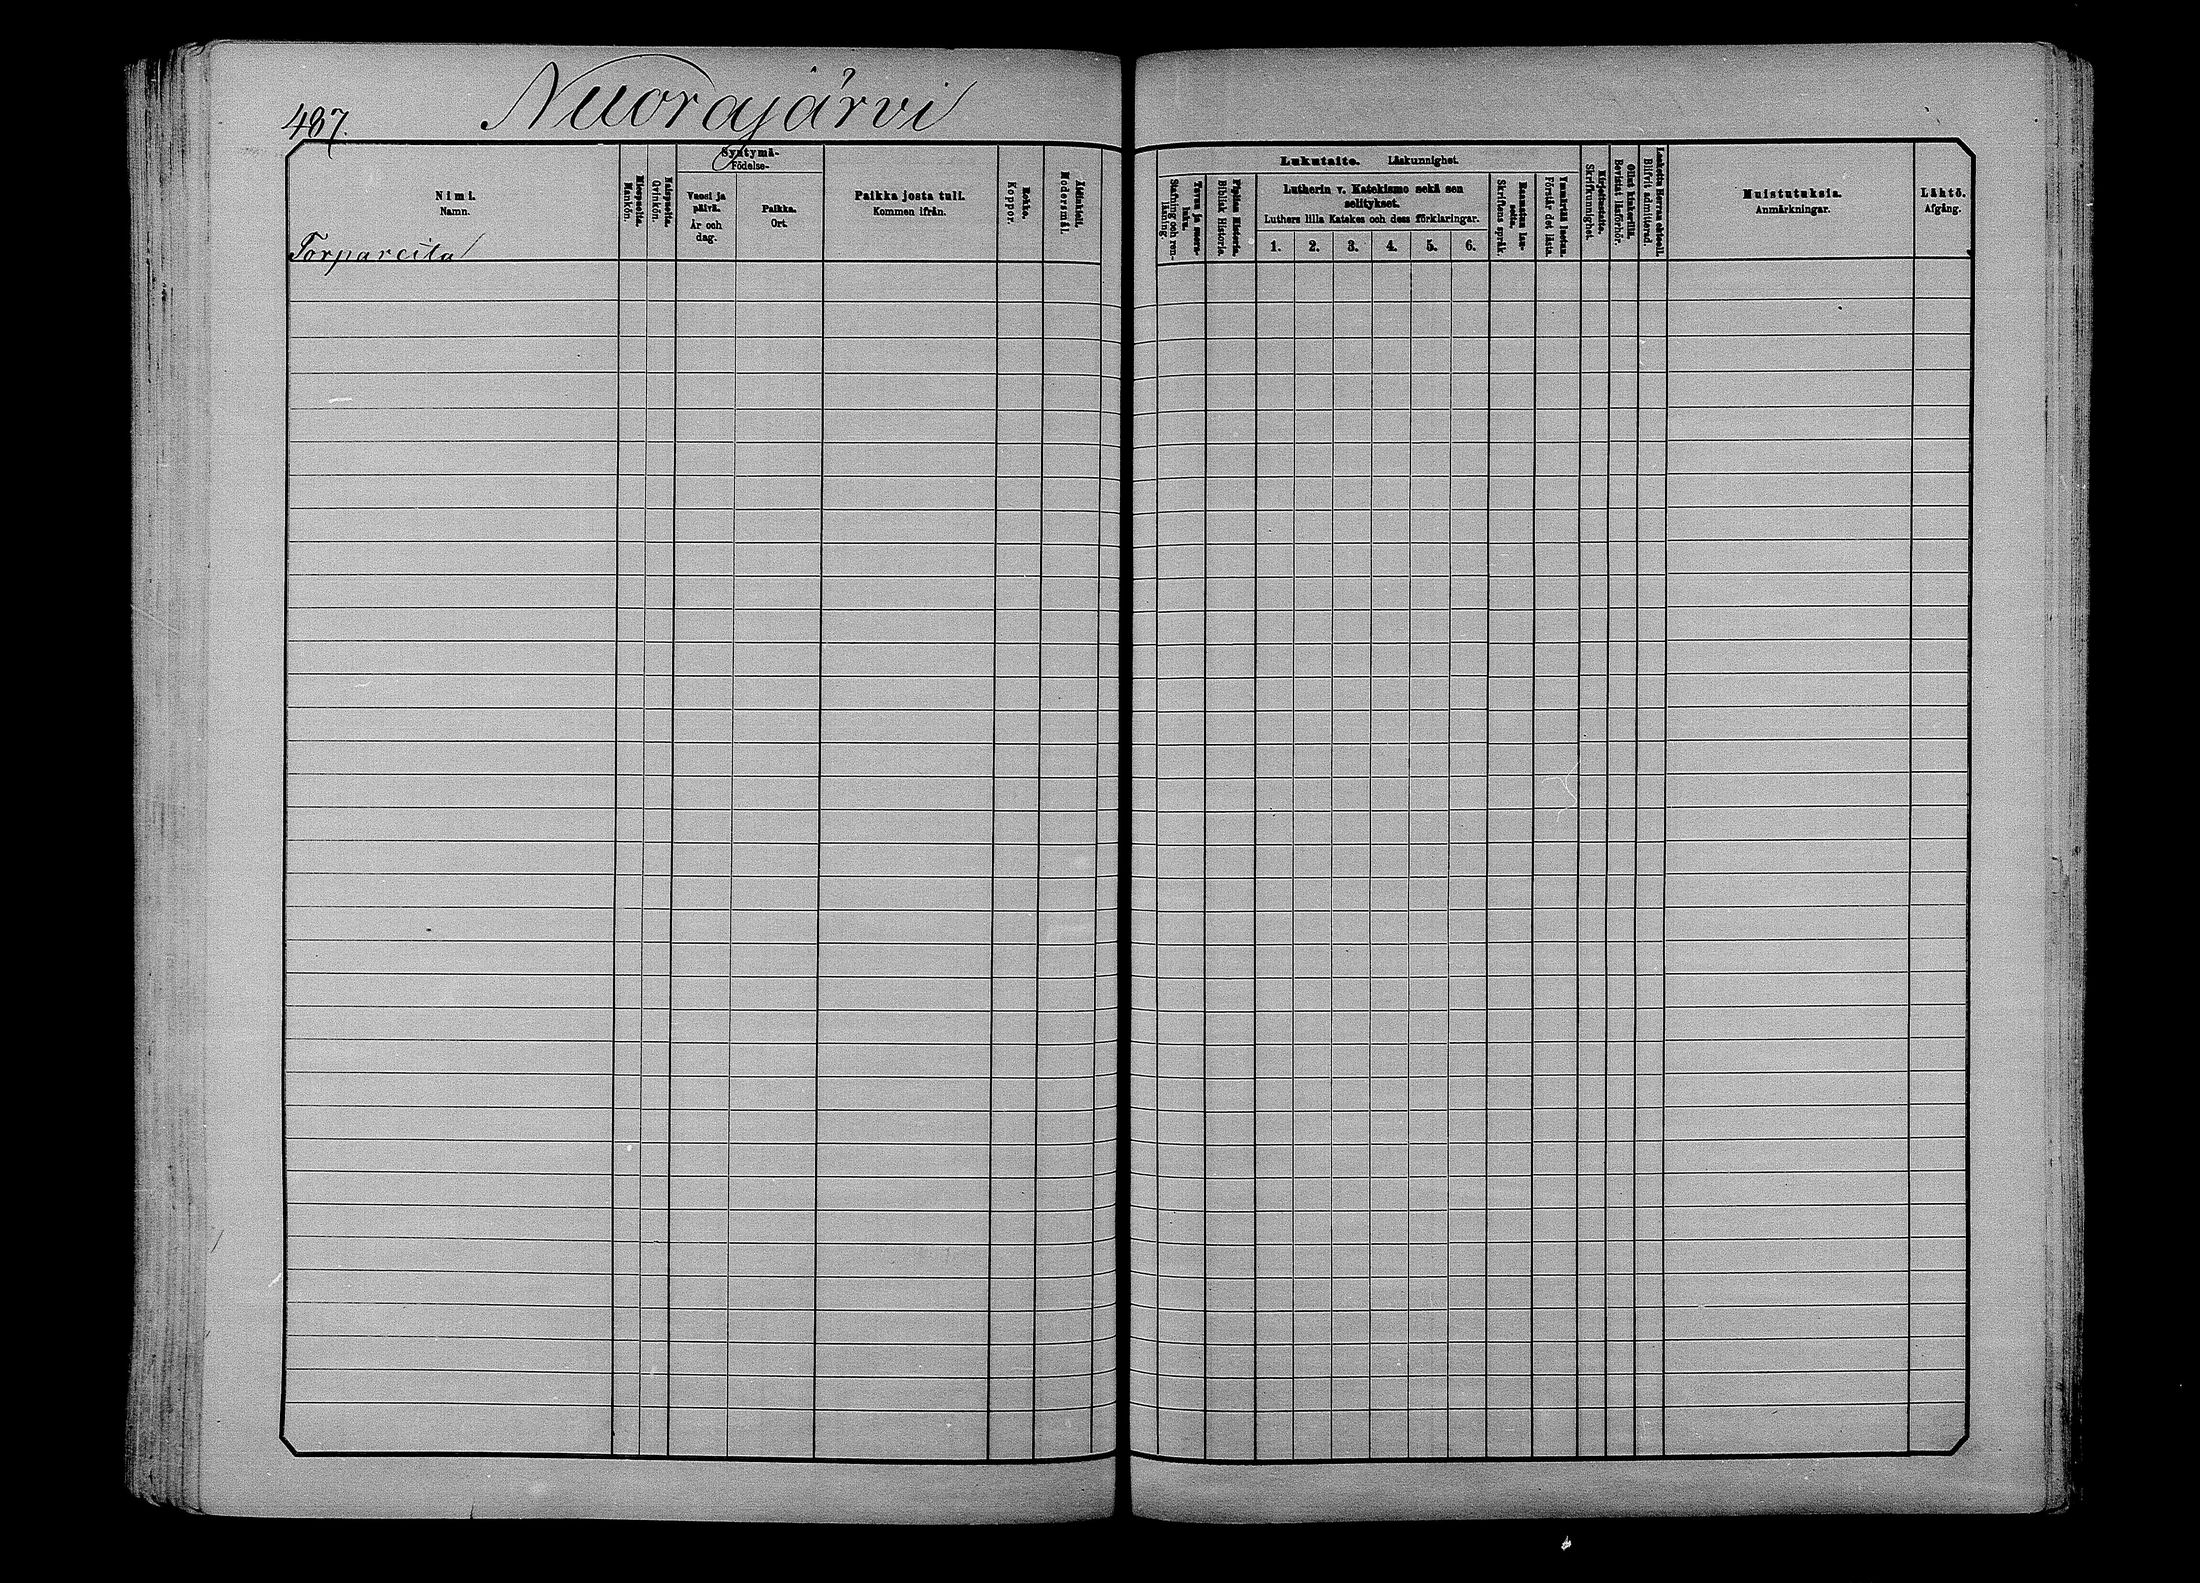 487.
Nuorajärvi
Nimi.
Namn.
Torpareita
Miespuolia.
Mankön.
Naispuolia.
Qvinkön.
Syntymä-
Födelse-
Vuosi ja
päivä.
År och
dag.
Paikka.
Ort.
Paikka josta tuli.
Kommen ifrån.
Rokko.
Koppor.
Äidinkieli.
Modersmål.
Lukutaito. Läskunnighet.
Tavuu ja suora-
luku.
Stafning och ren-
läsning.
Piplian Historia.
Biblisk Historia.
Lutherin v. Katekismo sekä sen
selitykset.
Luthers lilla Katekes och dess förklaringar.
1. 2. 3. 4. 5. 6.
Raamatun lau-
seita.
Skriftens språk.
Ymmärtää luetun.
Förstår det lästa.
Kirjoitustaito.
Skrifkunnighet.
Ollut kinkerillä.
Bevistat läsförhör.
Laskettu Herran ehtooll.
Blifvit admitterad.
Muistutuksia.
Anmärkningar.
Lähtö.
Afgång.